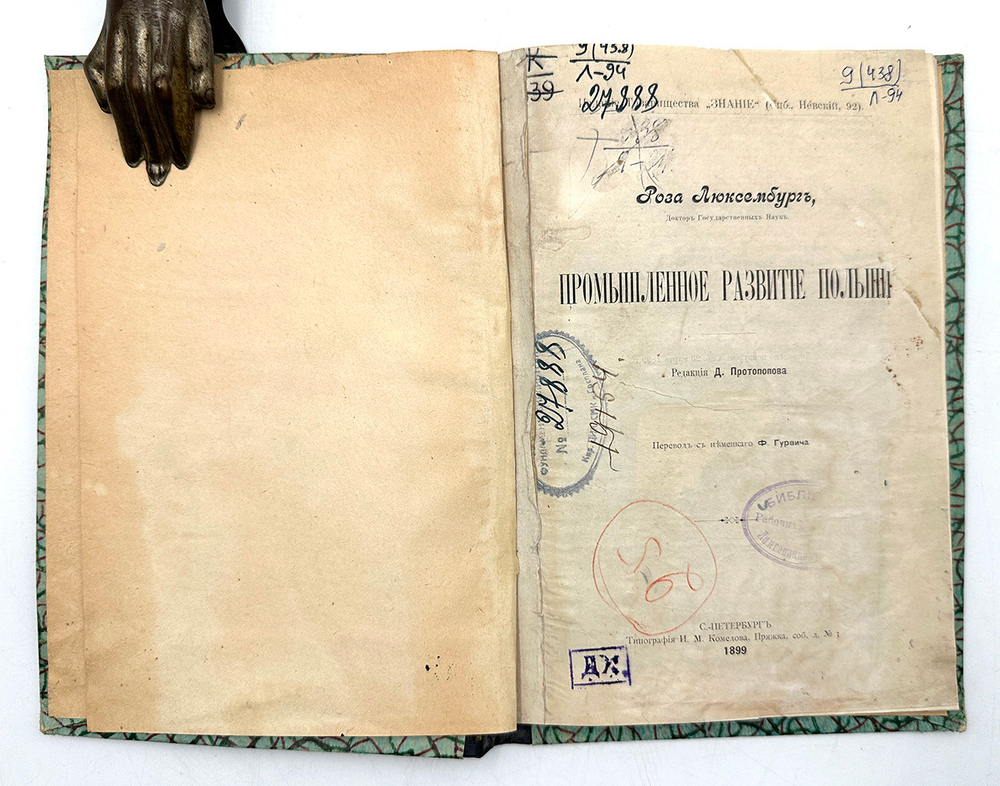 К
39
9(43.8)
Л-94
27888
9(438)
Л-94
Товарищества „ЗНАНІЕ“ (Спб., Невскій, 92).
Роза Люксембургъ,
Докторъ Государственныхъ Наукъ.
ПРОМЫШЛЕННОЕ РАЗВИТІЕ ПОЛЬШИ
№ 27888
Редакція Д. Протопопова
Переводъ съ нѣмецкаго Ф. Гурвича
БИБЛ
Рабочи
С.-ПЕТЕРБУРГЪ
Типографія И. М. Комелова, Пряжка, соб. д. № 3
1899
ДК